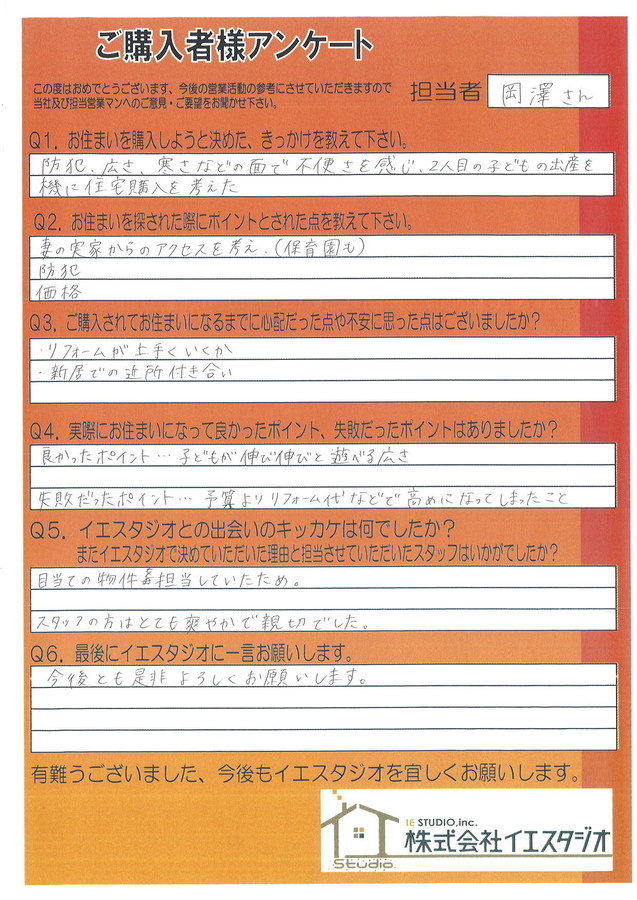 ご購入者様アンケート
この度はおめでとうございます、今後の営業活動の参考にさせていただきますので
当社及び担当営業マンへのご意見・ご要望をお聞かせ下さい。
担当者 岡澤さん
Q1. お住まいを購入しようと決めた、きっかけを教えて下さい。
防犯、広さ、寒さなどの面で不便さを感じ、2人目の子どもの出産を
機に住宅購入を考えた
Q2. お住まいを探された際にポイントとされた点を教えて下さい。
妻の実家からのアクセスを考え、(保育園も)
防犯
価格
Q3. ご購入されてお住まいになるまでに心配だった点や不安に思った点はございましたか?
・リフォームが上手くいくか
・新居での近所付き合い
Q4. 実際にお住まいになって良かったポイント、失敗だったポイントはありましたか?
良かったポイント… 子どもが伸び伸びと遊べる広さ
失敗だったポイント… 予算よりリフォーム代などで高めになってしまったこと
Q5. イエスタジオとの出会いのキッカケは何でしたか?
またイエスタジオで決めていただいた理由と担当させていただいたスタッフはいかがでしたか?
目当ての物件 担当していたため。
スタッフの方はとても爽やかで親切でした。
Q6. 最後にイエスタジオに一言お願いします。
今後とも是非よろしくお願いします。
有難うございました、今後もイエスタジオを宜しくお願いします。
IE STUDIO,inc.
株式会社イエスタジオ
Studio